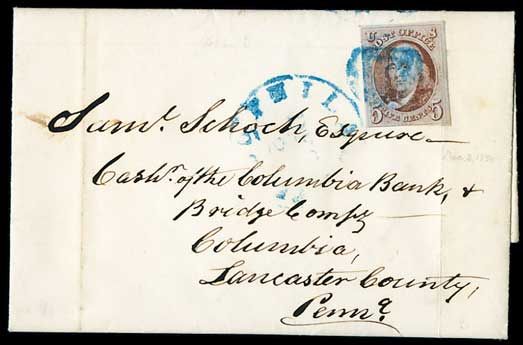 U S
POST OFFICE
5 FIVE CENTS 5
PHILA
Saml. Schoch, Esquire
Cashr. of the Columbia Bank, &
Bridge Compy
Columbia,
Lancaster County,
Penna.